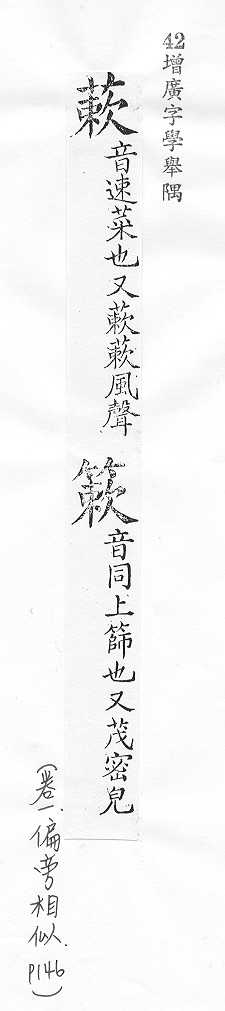 42增廣字學舉隅
蔌音速菜也又蔌蔌風聲 簌音同上篩也又茂密皃
(卷一.偏旁相似.P146)